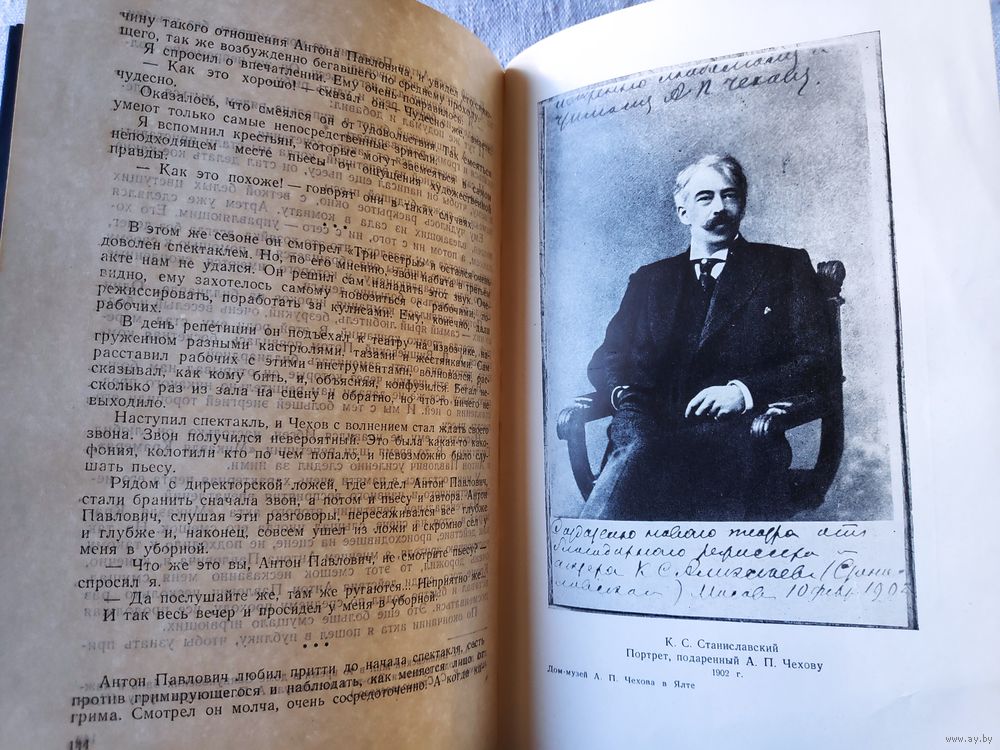 чину такого отношения Антона Павловича, и увидел его само-
щего, так же возбужденно бегавшего по среднему проходу.
Я спросил о впечатлении. Ему очень понравилось.
— Как это хорошо! — сказал он — Чудесно же,
чудесно.
Оказалось, что смеялся он от удовольствия. Так смеяться
умеют только самые непосредственные зрители.
Я вспомнил крестьян, которые могут засмеяться в самом
неподходящем месте пьесы от ощущения художественной
правды.
— Как это похоже! — говорят они в таких случаях.
* * *
В этом же сезоне он смотрел «Три сестры» и остался очень
доволен спектаклем. Но, по его мнению, звон набата в третьем
акте нам не удался. Он решил сам наладить этот звук. Оче-
видно, ему захотелось самому повозиться с рабочими, по-
режиссировать, поработать за кулисами. Ему, конечно, дали
рабочих.
В день репетиции он подъехал к театру на извозчике, на-
груженном разными кастрюлями, тазами и жестянками. Сам
расставил рабочих с этими инструментами, волновался, рас-
сказывал, как кому бить, и, объясняя, конфузился. Бегал не-
сколько раз из зала на сцену и обратно, но что-то ничего не
выходило.
Наступил спектакль, и Чехов с волнением стал ждать своего
звона. Звон получился невероятный. Это была какая-то како-
фония, колотили кто по чем попало, и невозможно было слу-
шать пьесу.
Рядом с директорской ложей, где сидел Антон Павлович,
стали бранить сначала звон, а потом и пьесу и автора. Антон
Павлович, слушая эти разговоры, пересаживался все глубже
и глубже и, наконец, совсем ушел из ложи и скромно сел у
меня в уборной.
— Что же это вы, Антон Павлович, не смотрите пьесу? —
спросил я.
— Да послушайте же, там же ругаются... Неприятно же...
И так весь вечер и просидел у меня в уборной.
* * *
Антон Павлович любил притти до начала спектакля, сесть
против гримирующегося и наблюдать, как меняется лицо от
грима. Смотрел он молча, очень сосредоточенно. А когда
А П Чехову.
К С Алексеева (Стани-
славский) Москва 10 1902
К. С. Станиславский
Портрет, подаренный А. П. Чехову
1902 г.
Дом-музей А. П. Чехова в Ялте
www.ay.by